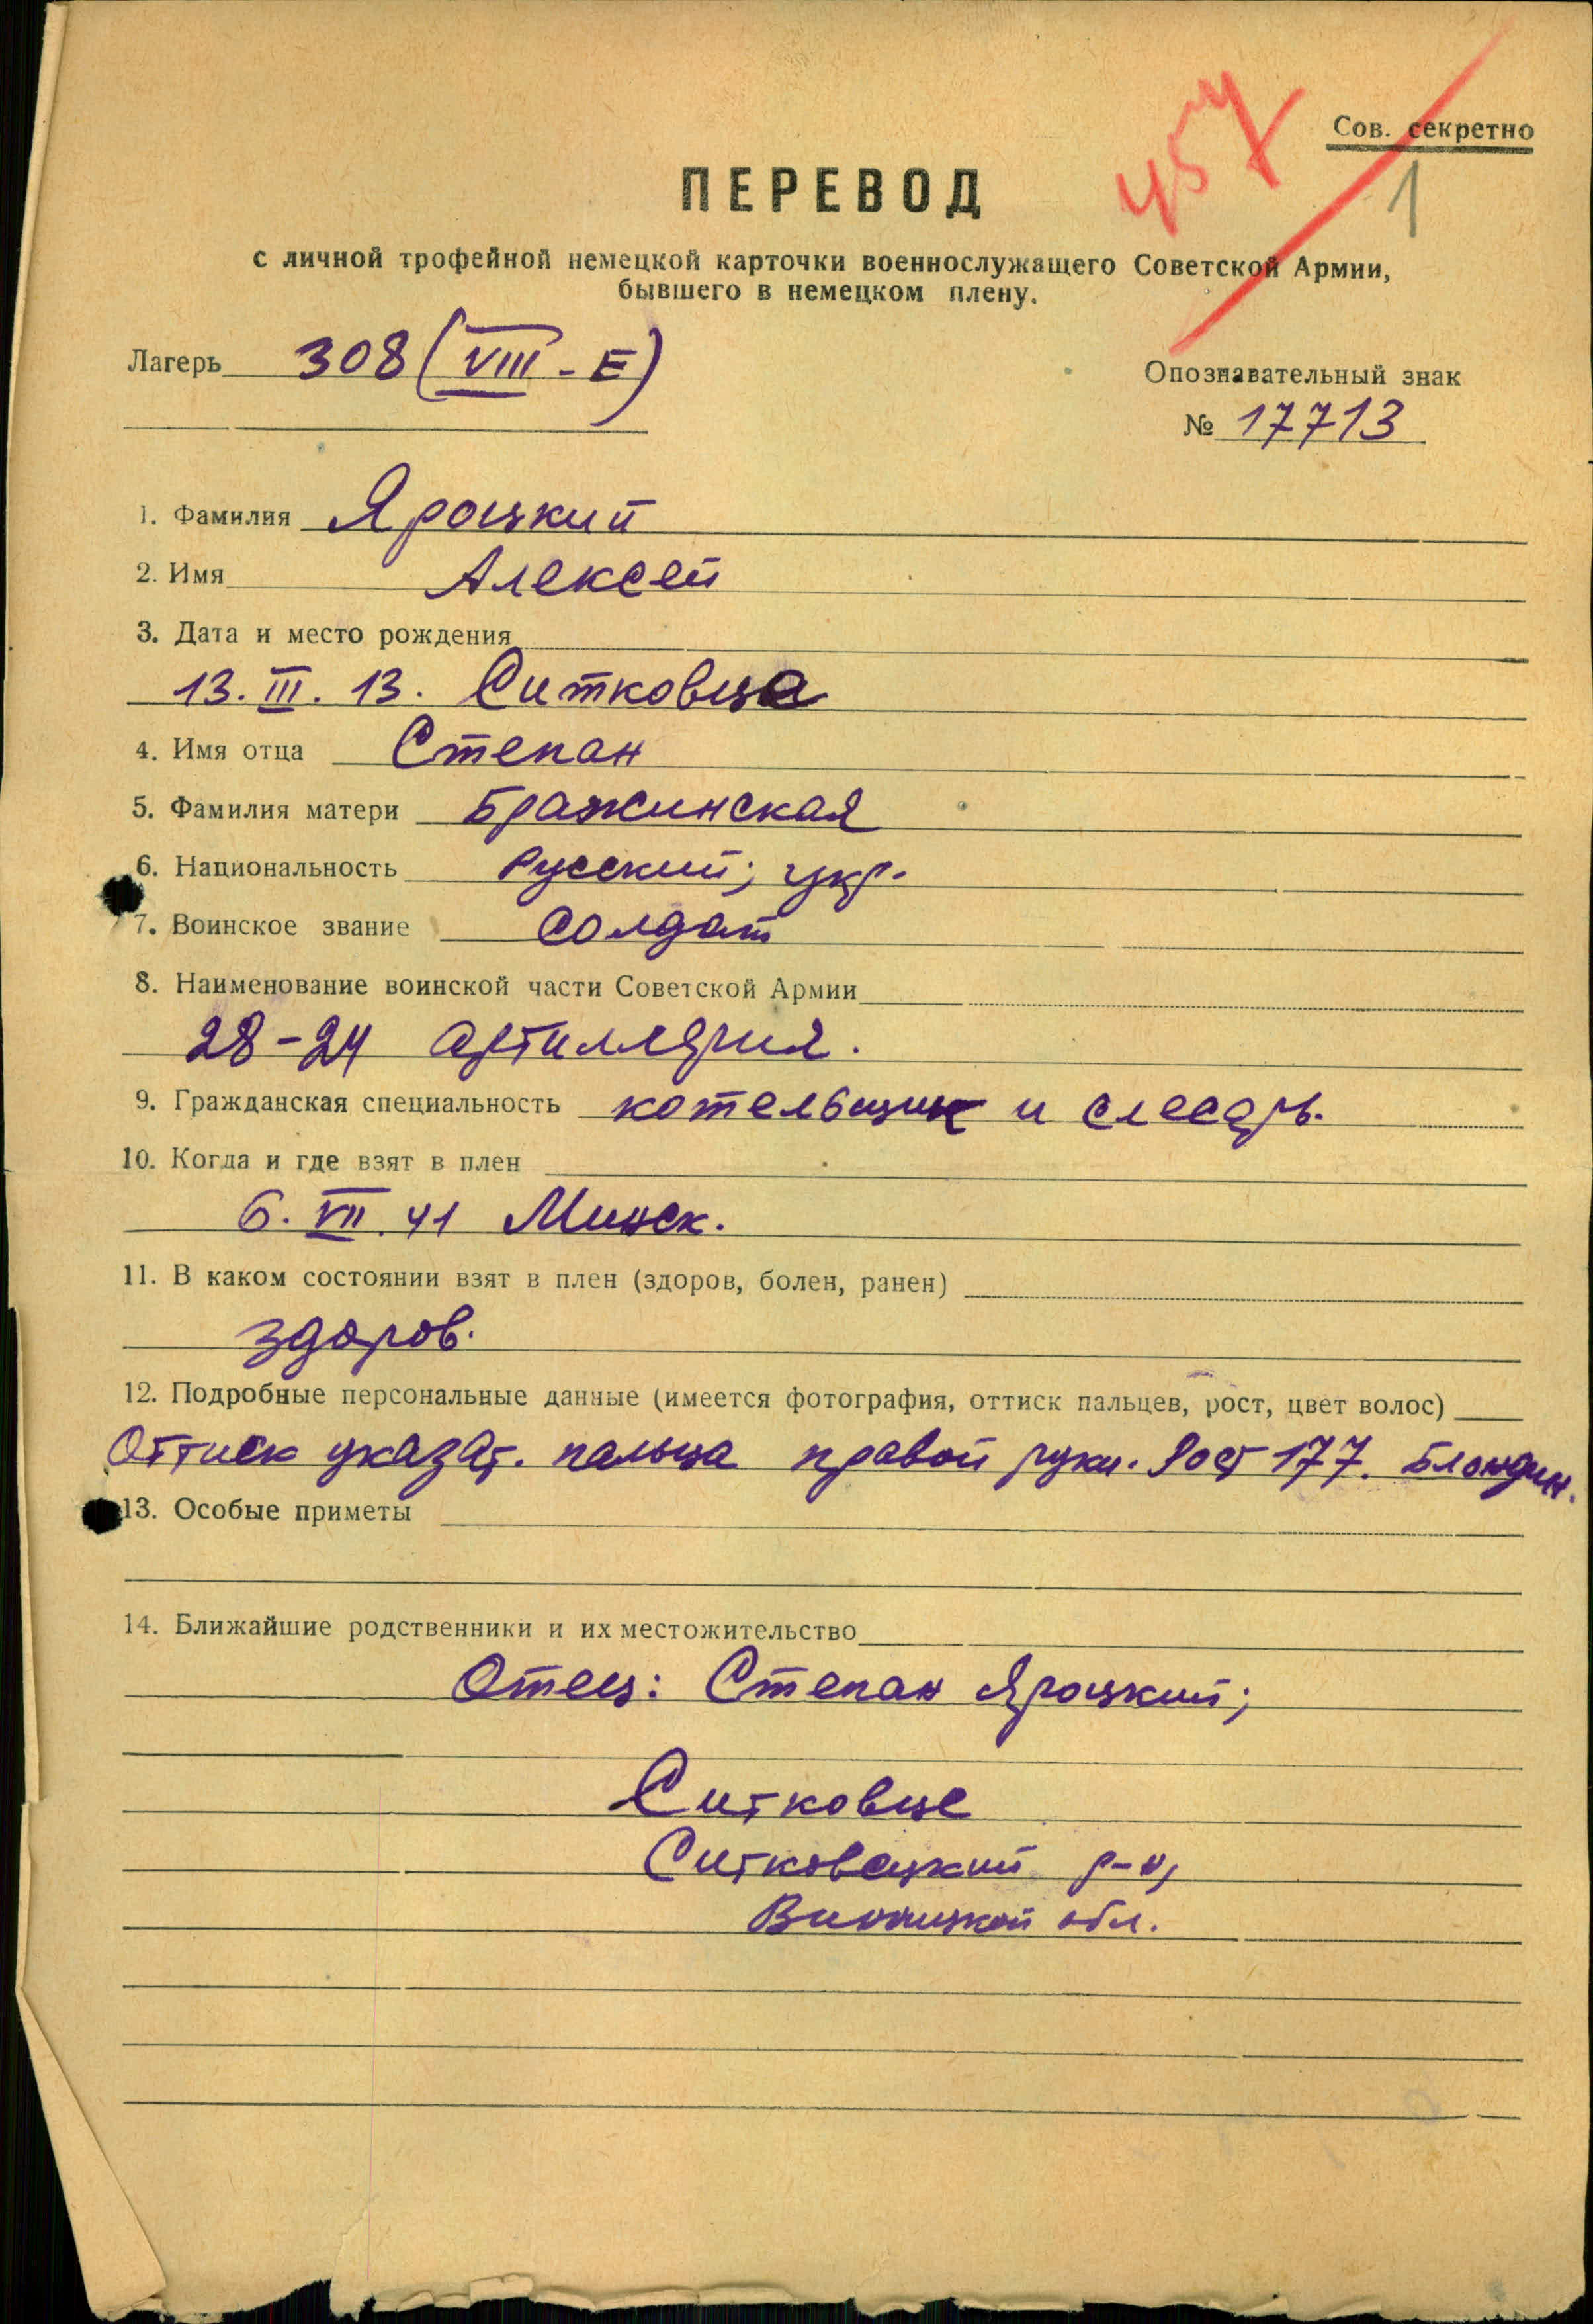 457
Сов. секретно
1
ПЕРЕВОД
с личной трофейной немецкой карточки военнослужащего Советской Армии,
бывшего в немецком плену.
Лагерь 308 (VIII - E)
Опознавательный знак
№ 17713
1. Фамилия Яроцкий
2. Имя Алексей
3. Дата и место рождения
13. III. 13. Ситковца
4. Имя отца Степан
5. Фамилия матери Бражинская
6. Национальность Русский; укр.
7. Воинское звание солдат
8. Наименование воинской части Советской Армии
28-24 артиллерия.
9. Гражданская специальность котельщик и слесарь.
10. Когда и где взят в плен
6. VII. 41 Минск.
11. В каком состоянии взят в плен (здоров, болен, ранен)
здоров.
12. Подробные персональные данные (имеется фотография, оттиск пальцев, рост, цвет волос)
Оттиск указат. пальца правой руки. Рост 177. Блондин.
13. Особые приметы
14. Ближайшие родственники и их местожительство
Отец: Степан Яроцкий;
Ситковце
Ситковецкий р-н,
Винницкой обл.